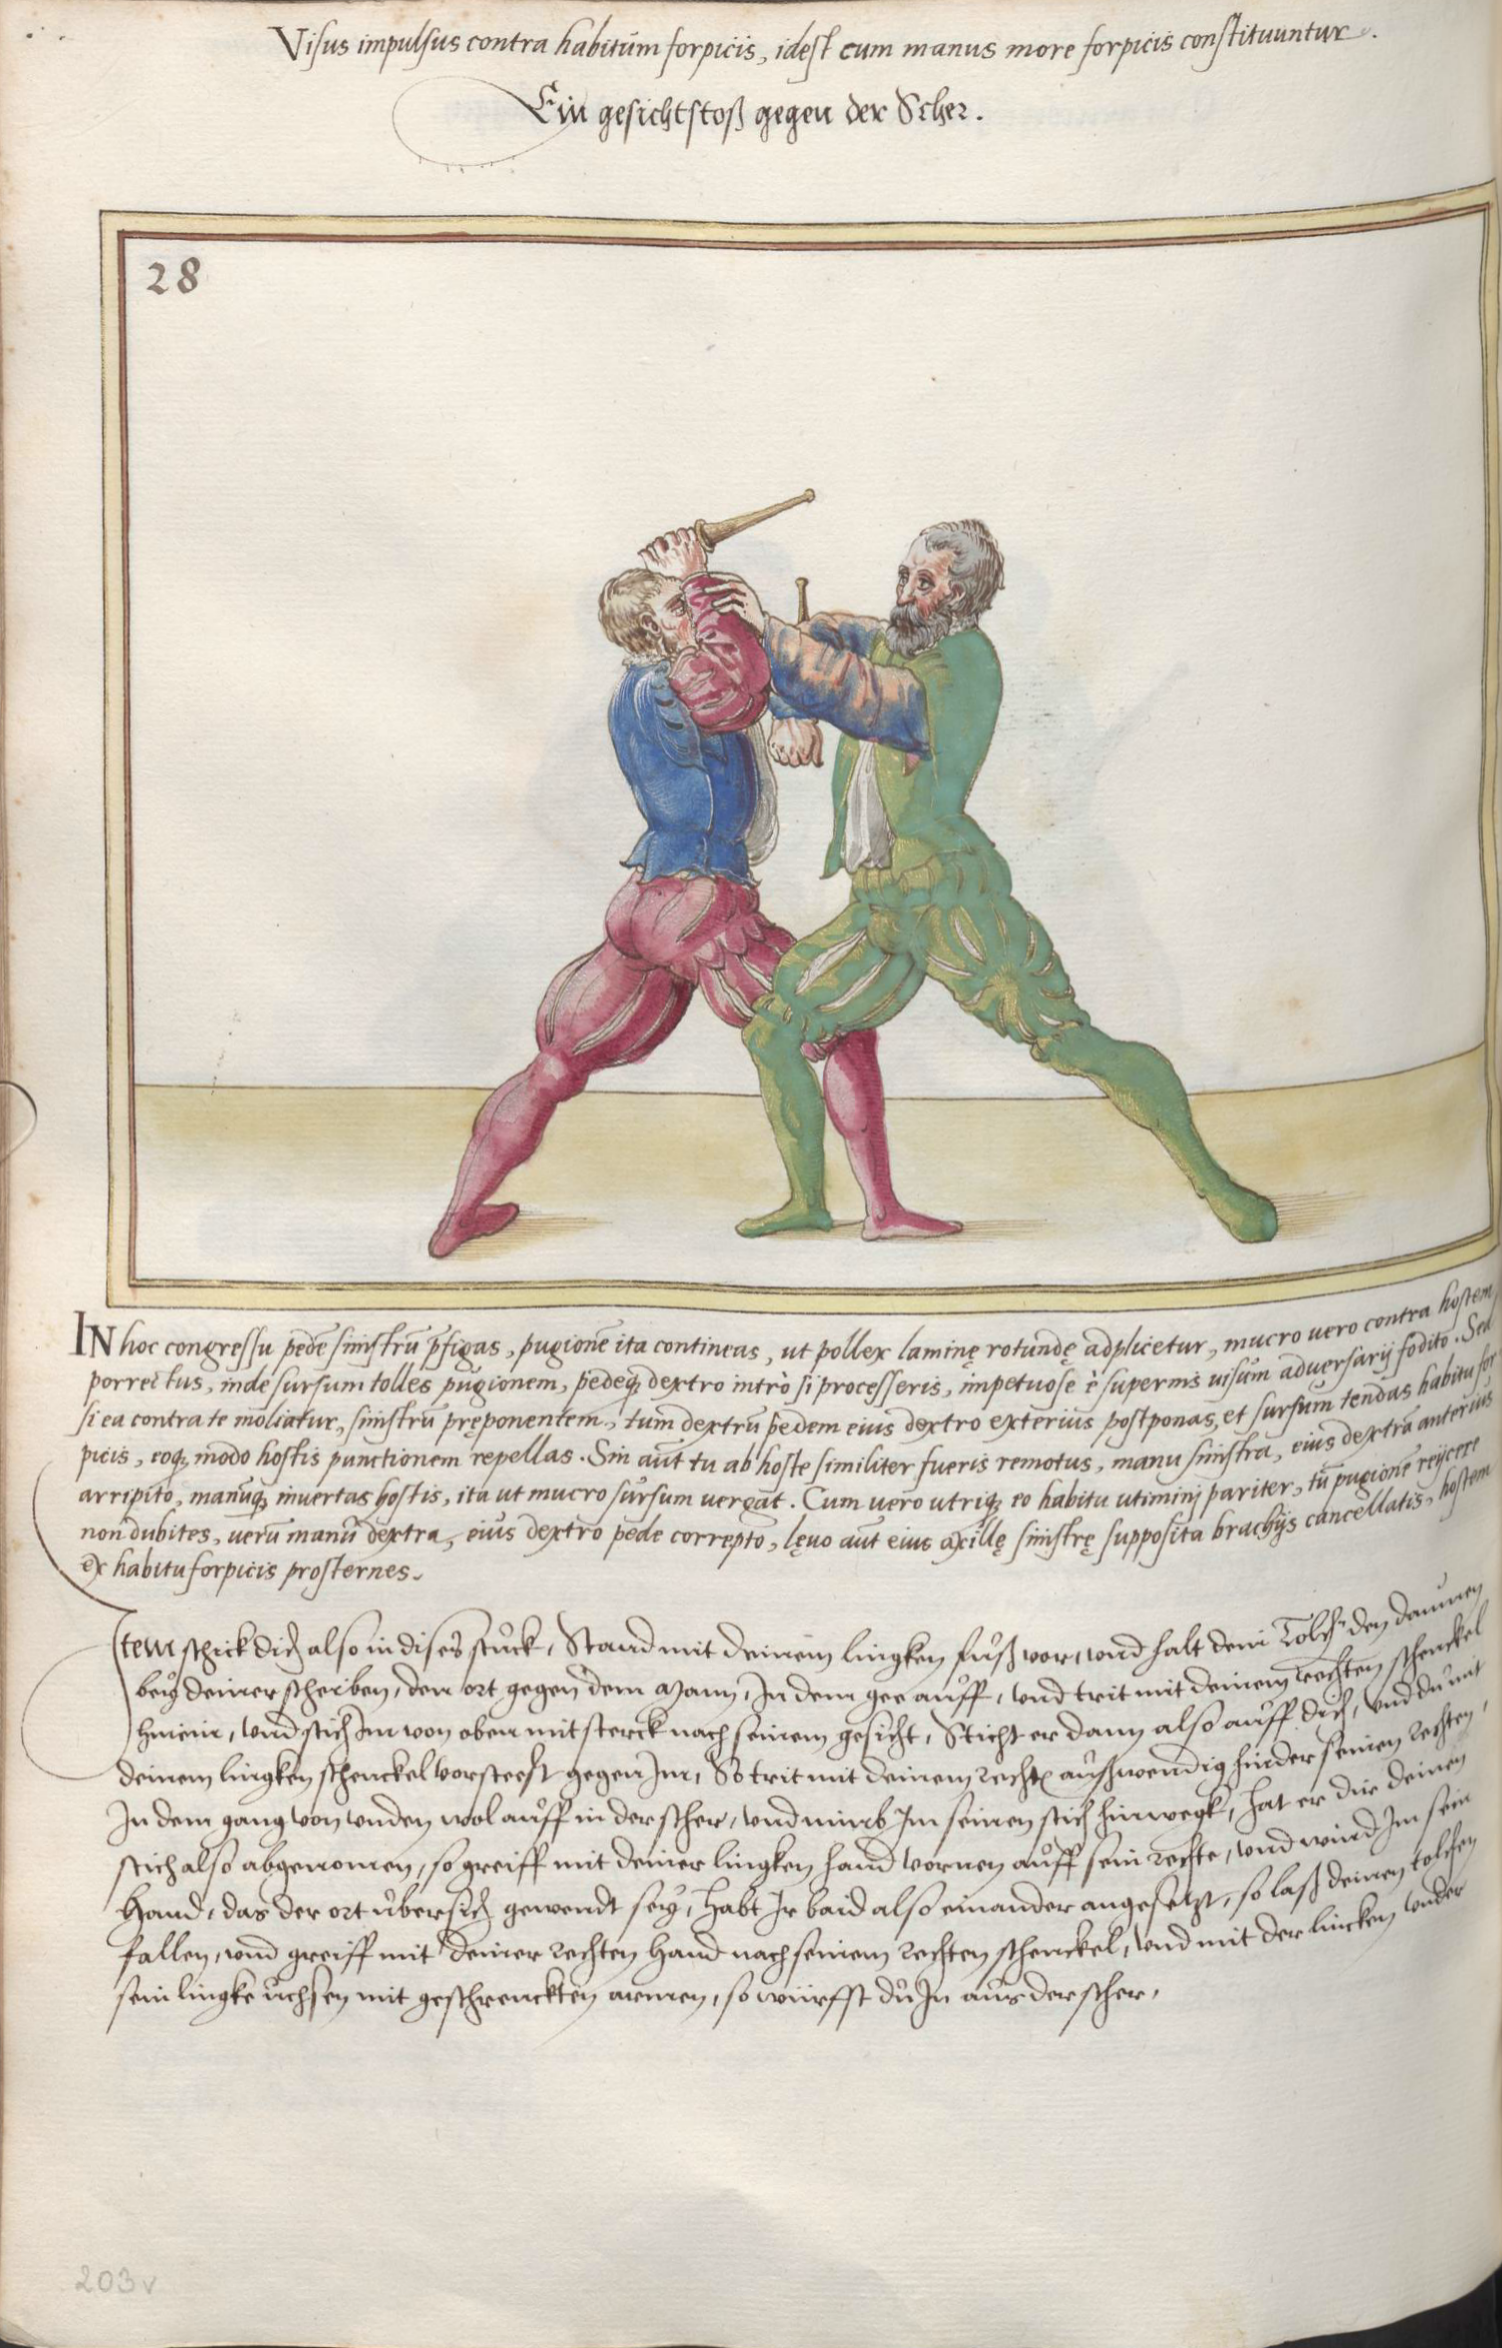 Visus impulsus contra habitum forpicis, idest cum manus more forpicis constituuntur.
Ein gesichtstoß gegen der Scher.
28
IN hoc congressu pedē sinistrū p̄figas, pugionē ita contineas, ut pollex laminę rotundę adplicetur, mucro uero contra hostem
porrectus, inde sursum tolles pugionem, pedeq́ꝫ dextro intrò si processeris, impetuose è supernis uisum aduersarij fodito. Sed
si ea contra te moliatur, sinistrū pręponentem, tum dextrū pedem eius dextro exterius postponas, et sursum tendas habitu for
picis, eoqꝫ modo hostis punctionem repellas. Sin aūt tu ab hoste similiter fueris remotus, manu sinistra, eius dextrā anterius
arripito, manūqꝫ inuertas hostis, ita ut mucro sursum uergat. Cum uero utriqꝫ eo habitu utimini pariter, tū pugionē reijcere
non dubites, uerū manū dextra, eius dextro pede correpto, lęuo aūt eius axillę sinistrę supposita brachijs cancellatis, hostem
ex habitu forpicis prosternes.
Item schick dich also in dises stuck, Stand mit deinem lingken fuß vor, vnd halt dein Tolchen den daumen
bey deiner scheiben, den ort gegen dem Mann, In dem gee auff, vnd trit mit deinem rechten schenckel
hinein, vnd stich Im von oben mit sterck nach seinem gesicht, Sticht er dann also auff dich, vnd du mit
deinem lingken schenckel vorsteest gegen Im, So trit mit deinem rechtn außwendig hinder seinen rechten,
In dem gang von vnden wol auff in der scher, vnd nimb Im seinen stich hinwegk, hat er dir deinen
stich also abgenomen, so greiff mit deiner lingken hand vornen auff sein rechte, vnd wind Im sein
Hand, das der ort übersich gewendt sey, habt Ir baid also einander angesetzt, so laß deinen tolchen
fallen, vnd greiff mit deiner rechten Hand nach seinem rechten schenckel, vnd mit der lincken vnder
sein lingke üchsen mit geschrenckten armen, so würffst du In aus der scher,
203v